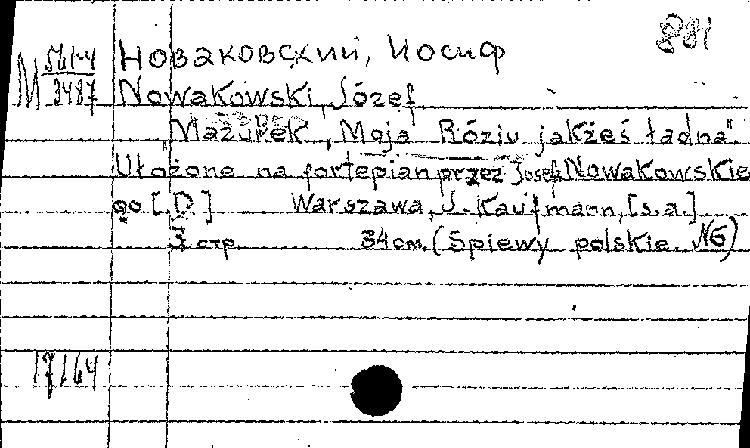 881
Новаковский, Иосиф
М 561-4
3487
Nowakowski, Józef
"Mazurek „Moja Róziu jakżeś ładna".
Ułożone na fortepian przez Josefa Nowakowskie
go [D] Warszawa, J. Kaufmann, [s.a.]
3 стр. 34 см. (Spiewy polskie. №6)
17164